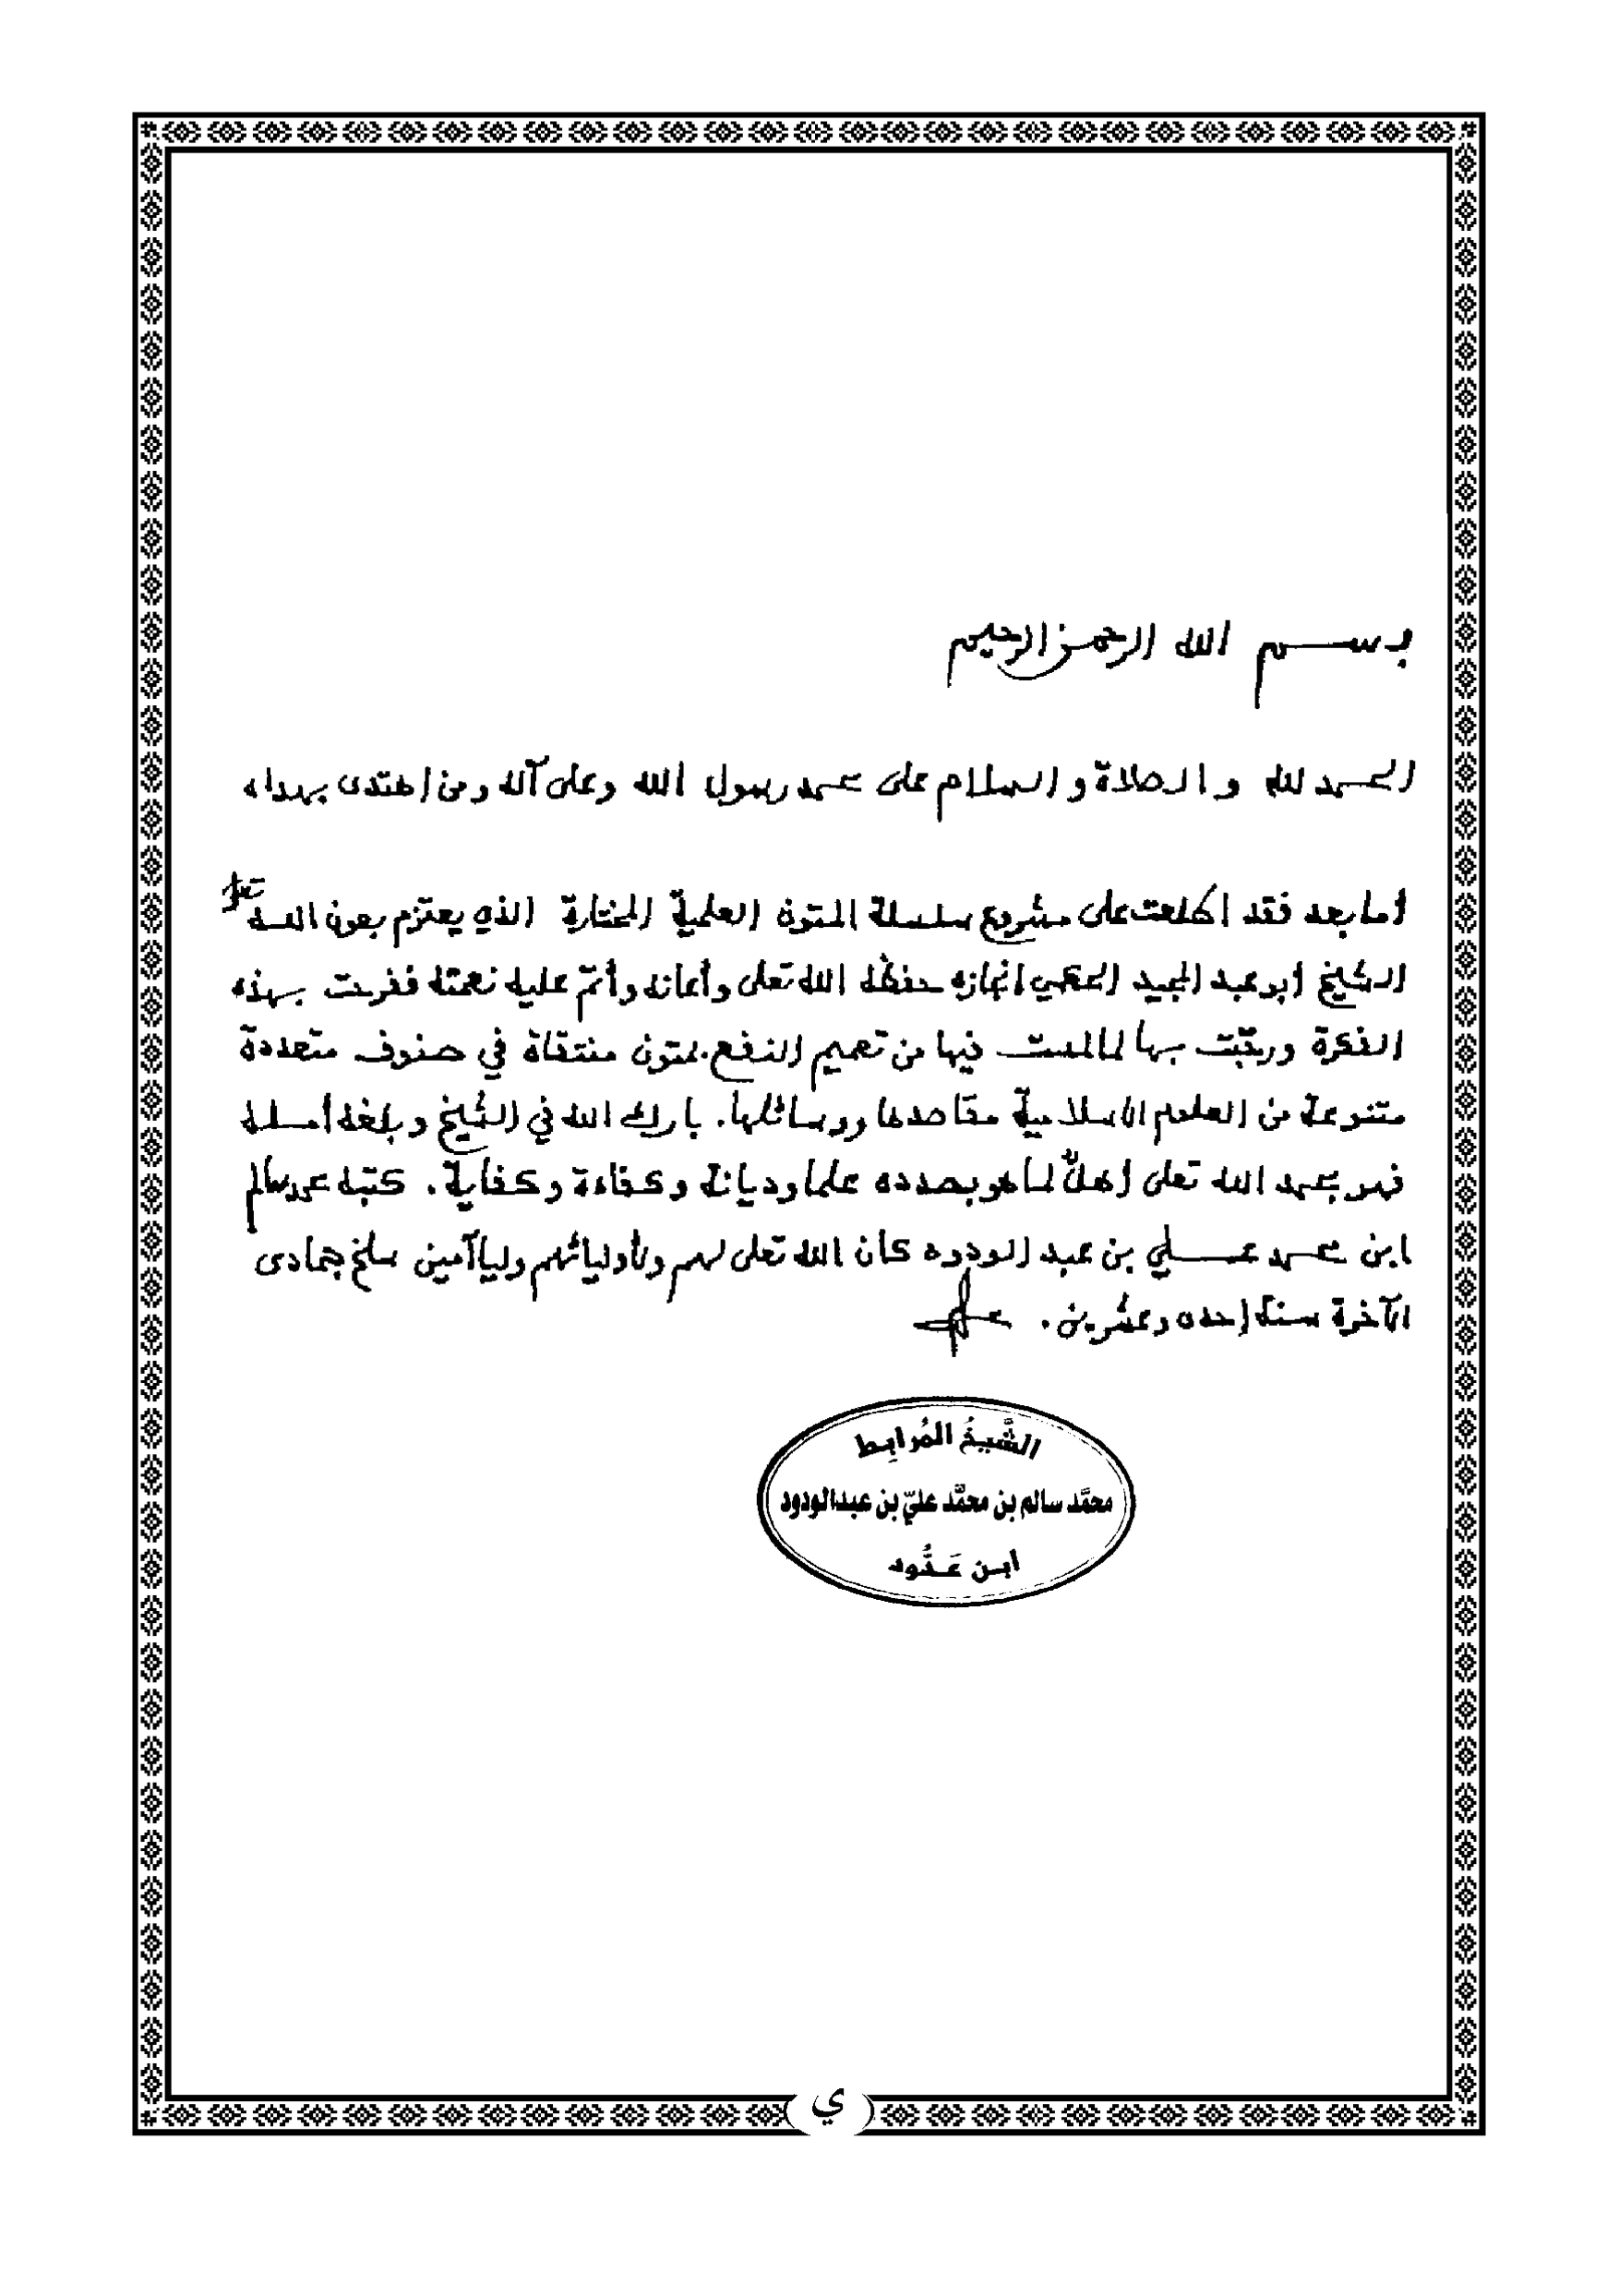 بسم الله الرحمن الرحيم
الحمد لله والصلاة والسلام على محمد رسول الله وعلى آله ومن اهتدى بهداه
أما بعد فقد اطلعت على مشروع سلسلة المتون العلمية المختارة الذي يعتزم بعون الله تعلى
الشيخ أبو عبد المجيد إنجازه حفظه الله تعلى وأعانه وأتم عليه نعمته ففرحت بهذه
الفكرة ورحّبت بها لما لمست فيها من تعميم النفع بمتون منتقاة في صنوف متعددة
متنوعة من العلوم الإسلامية مقاصدها ووسائلها. بارك الله في الشيخ وبلغه أمله
فهو بحمد الله تعلى أهلٌ لما هو بصدده علما وديانة وكفاءة وكفاية. كتبه محمد سالم
ابن محمد علي بن عبد الودود كان الله تعلى لهم ولأوليائهم وليا آمين سلخ جمادى
الآخرة سنة إحدى وعشرين.
الشَّيخُ المُرابِط
محمَّد سالم بن محمَّد عليّ بن عبدالودود
ابن عَدُّود
ي